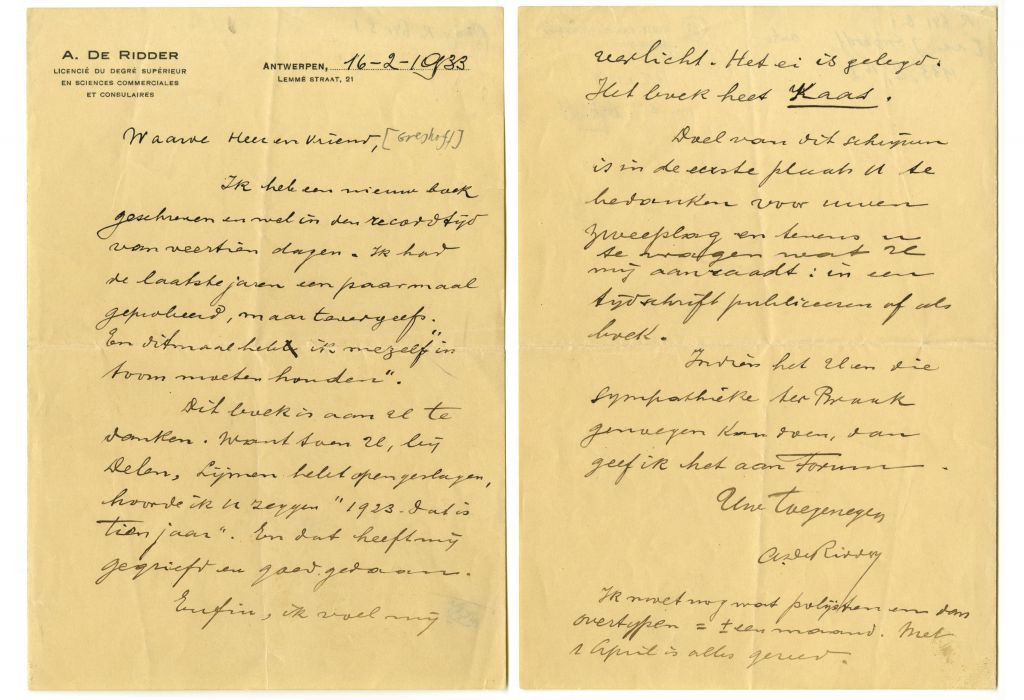 A. DE RIDDER
LICENCIÉ DU DEGRÉ SUPÉRIEUR
EN SCIENCES COMMERCIALES
ET CONSULAIRES
ANTWERPEN, 16-2-1933
LEMMÉ STRAAT, 21
Waarde Heer en Vriend, [Greshoff]
Ik heb een nieuw boek
geschreven en wel in den recordtijd
van veertien dagen. Ik had
de laatste jaren een paarmaal
geprobeerd, maar tevergeefs.
En ditmaal heb ik mezelf "in
toom moeten houden".
Dit boek is aan U te
danken. Want toen U, bij
Delen, Lijmen hebt opengeslagen,
hoorde ik U zeggen "1923. Dat is
tien jaar". En dat heeft mij
gegriefd en goed gedaan.
Enfin, ik voel mij
verlicht. Het ei is gelegd.
Het boek heet Kaas.
Doel van dit schrijven
is in de eerste plaats U te
bedanken voor uwen
zweepslag en tevens U
te vragen wat U
mij aanraadt: in een
tijdschrift publiceeren of als
boek.
Indien het U en die
sympathieke ter Braak
genoegen kan doen, dan
geef ik het aan Forum.
Uw toegenegen
A. de Ridder
Ik moet nog wat polijsten en dan
overtypen = ± een maand. Met
1 April is alles gereed.